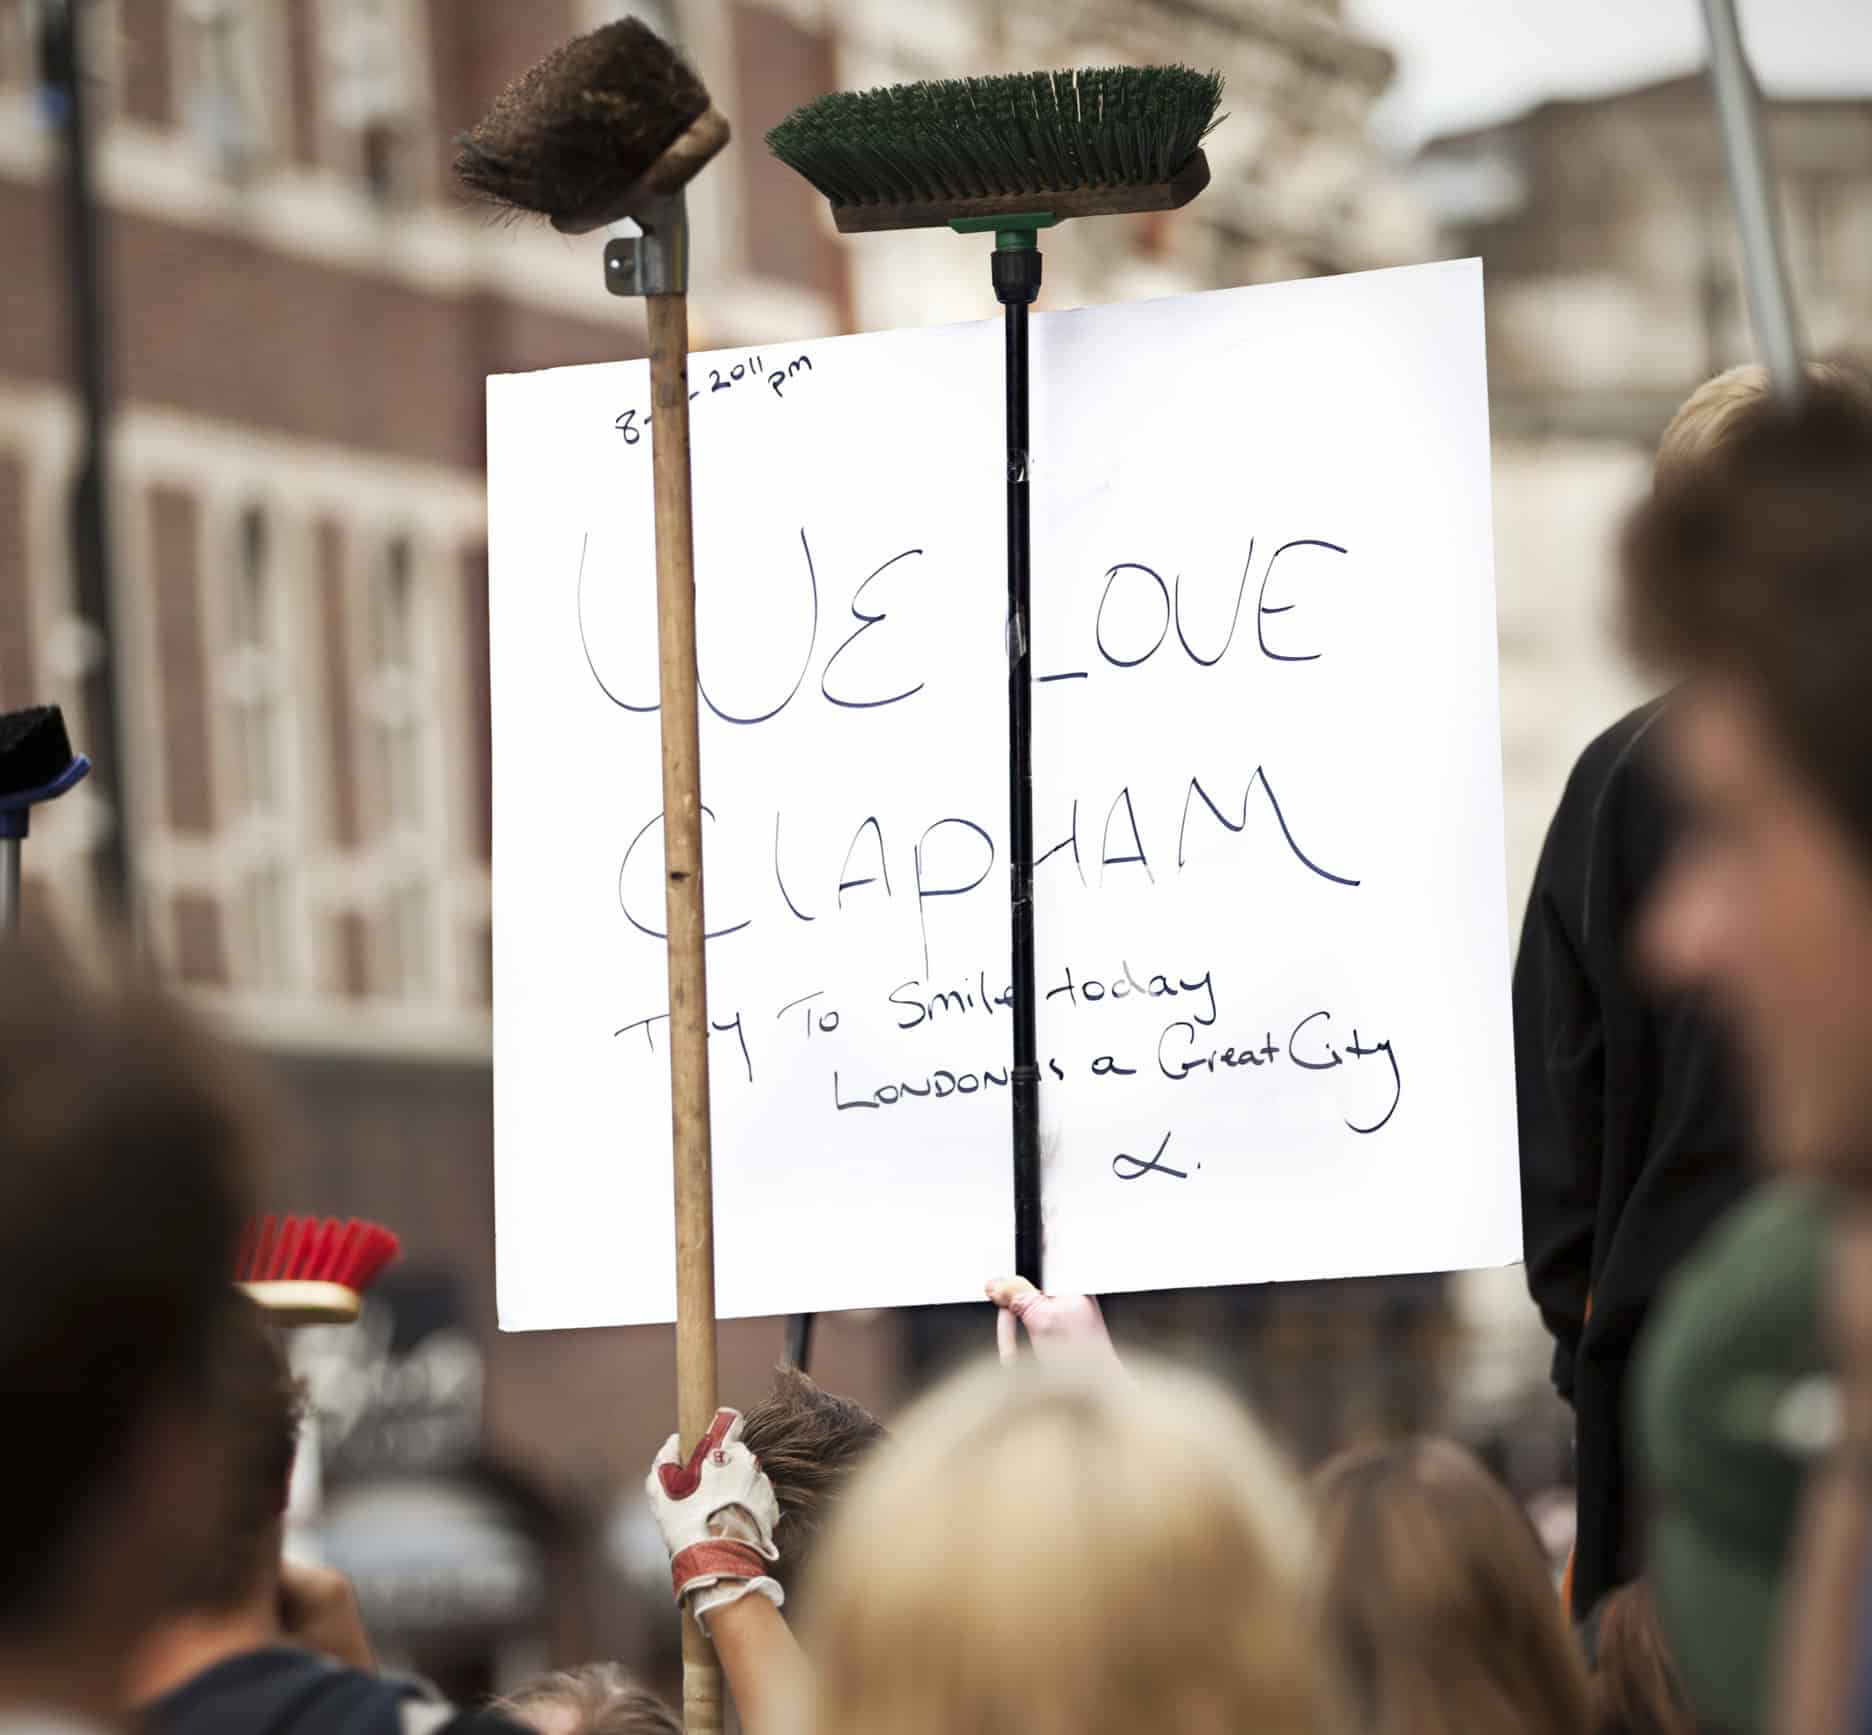 8- -2011 pm
WE LOVE
ClAPHAM
Try To Smile today
LONDON is a Great City
X.